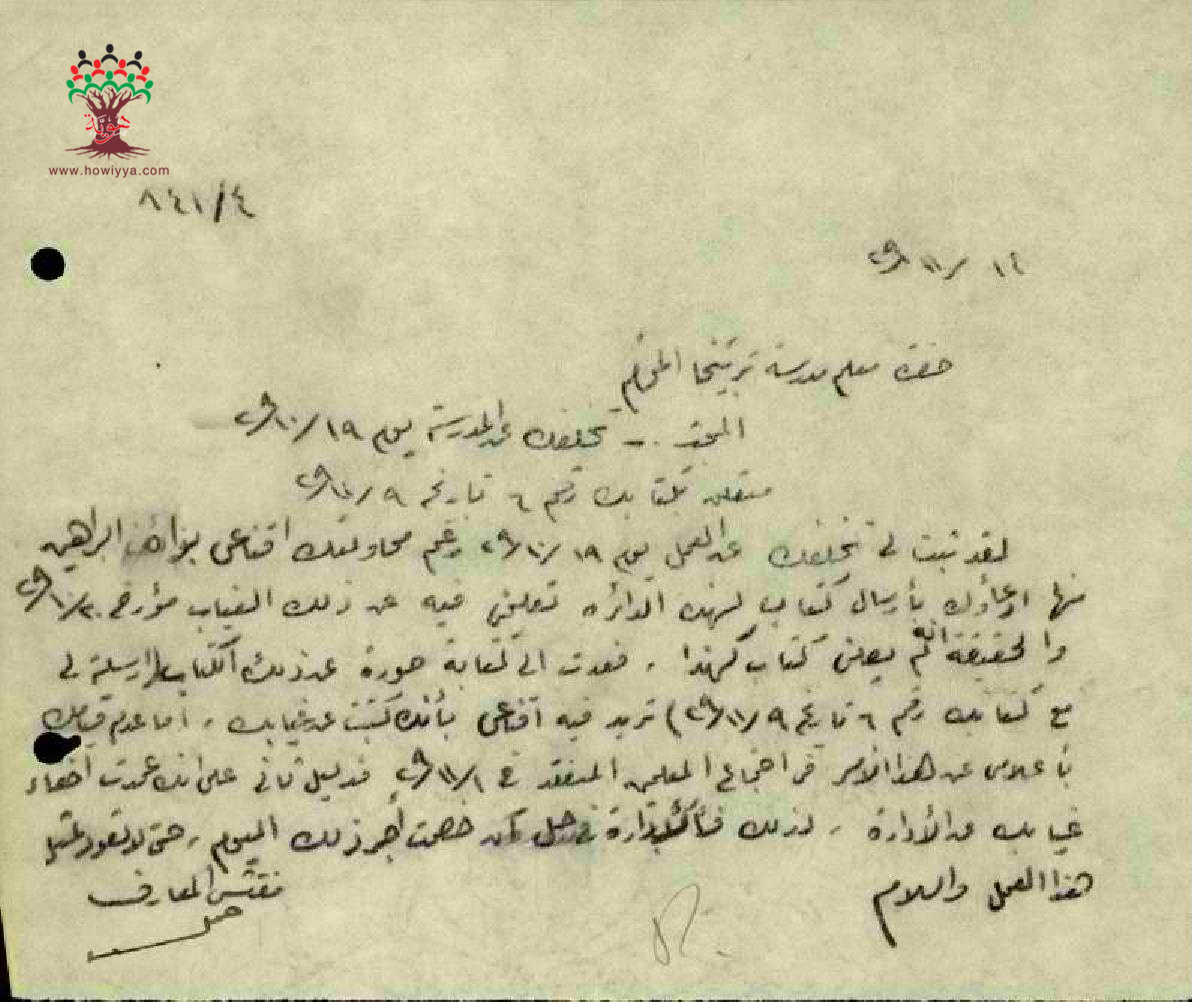 هوية
www.howiyya.com
٨٤١/٤
١٤ /١١/ ٤٩
حضرة معلم مدرسة تربيخا المحترم
تخلفك عن المدرسة يوم ١٩/١٠/
كتابك رقم ٦ تاريخ ٩
لقد ثبت لي تخلفك عن العمل يوم ١٩/١٠/ رغم محاولتك اقناعي البراهين
منها ادعاؤك بأرسال كتاب لهذه الدائره تعلمني فيه عن ذلك الغياب مؤرخ ٢٠/١٠/
والحقيقة انه لم يصلني كتاب كهذا . فعدت الى كتابة صورة عن ذلك الكتاب (ارسلته لي
مع كتابك رقم ٦ تاريخ ٩/١١/) تريد فيه اقناعي بأنك كتبت عن غيابك . اما عدم قيامك
بأعلامي عن هذا الأمر في اجتماع المعلمين المنعقد في ١/١١/ فدليل ثاني على انك عمدت اخفاء
غيابك عن الأدارة . لذلك خصمت أجر ذلك اليوم ، حتى لا تعود لمثل
هذا العمل والسلام
مفتش المعارف